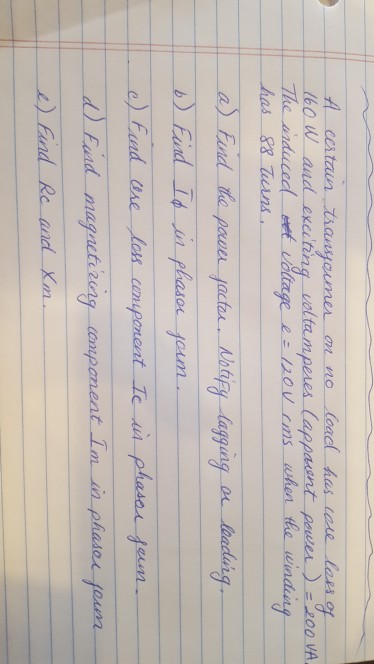 A certain transformer on no load has core loss of
160 W and exciting voltamperes (apparent power) = 200 VA
The induced voltage e = 120 V rms when the winding
has 88 Turns.
a) Find the power factor. Notify lagging or leading.
b) Find Iϕ in phasor form.
c) Find core loss component Ic in phasor form.
d) Find magnetizing component Im in phasor form
e) Find Rc and Xm.